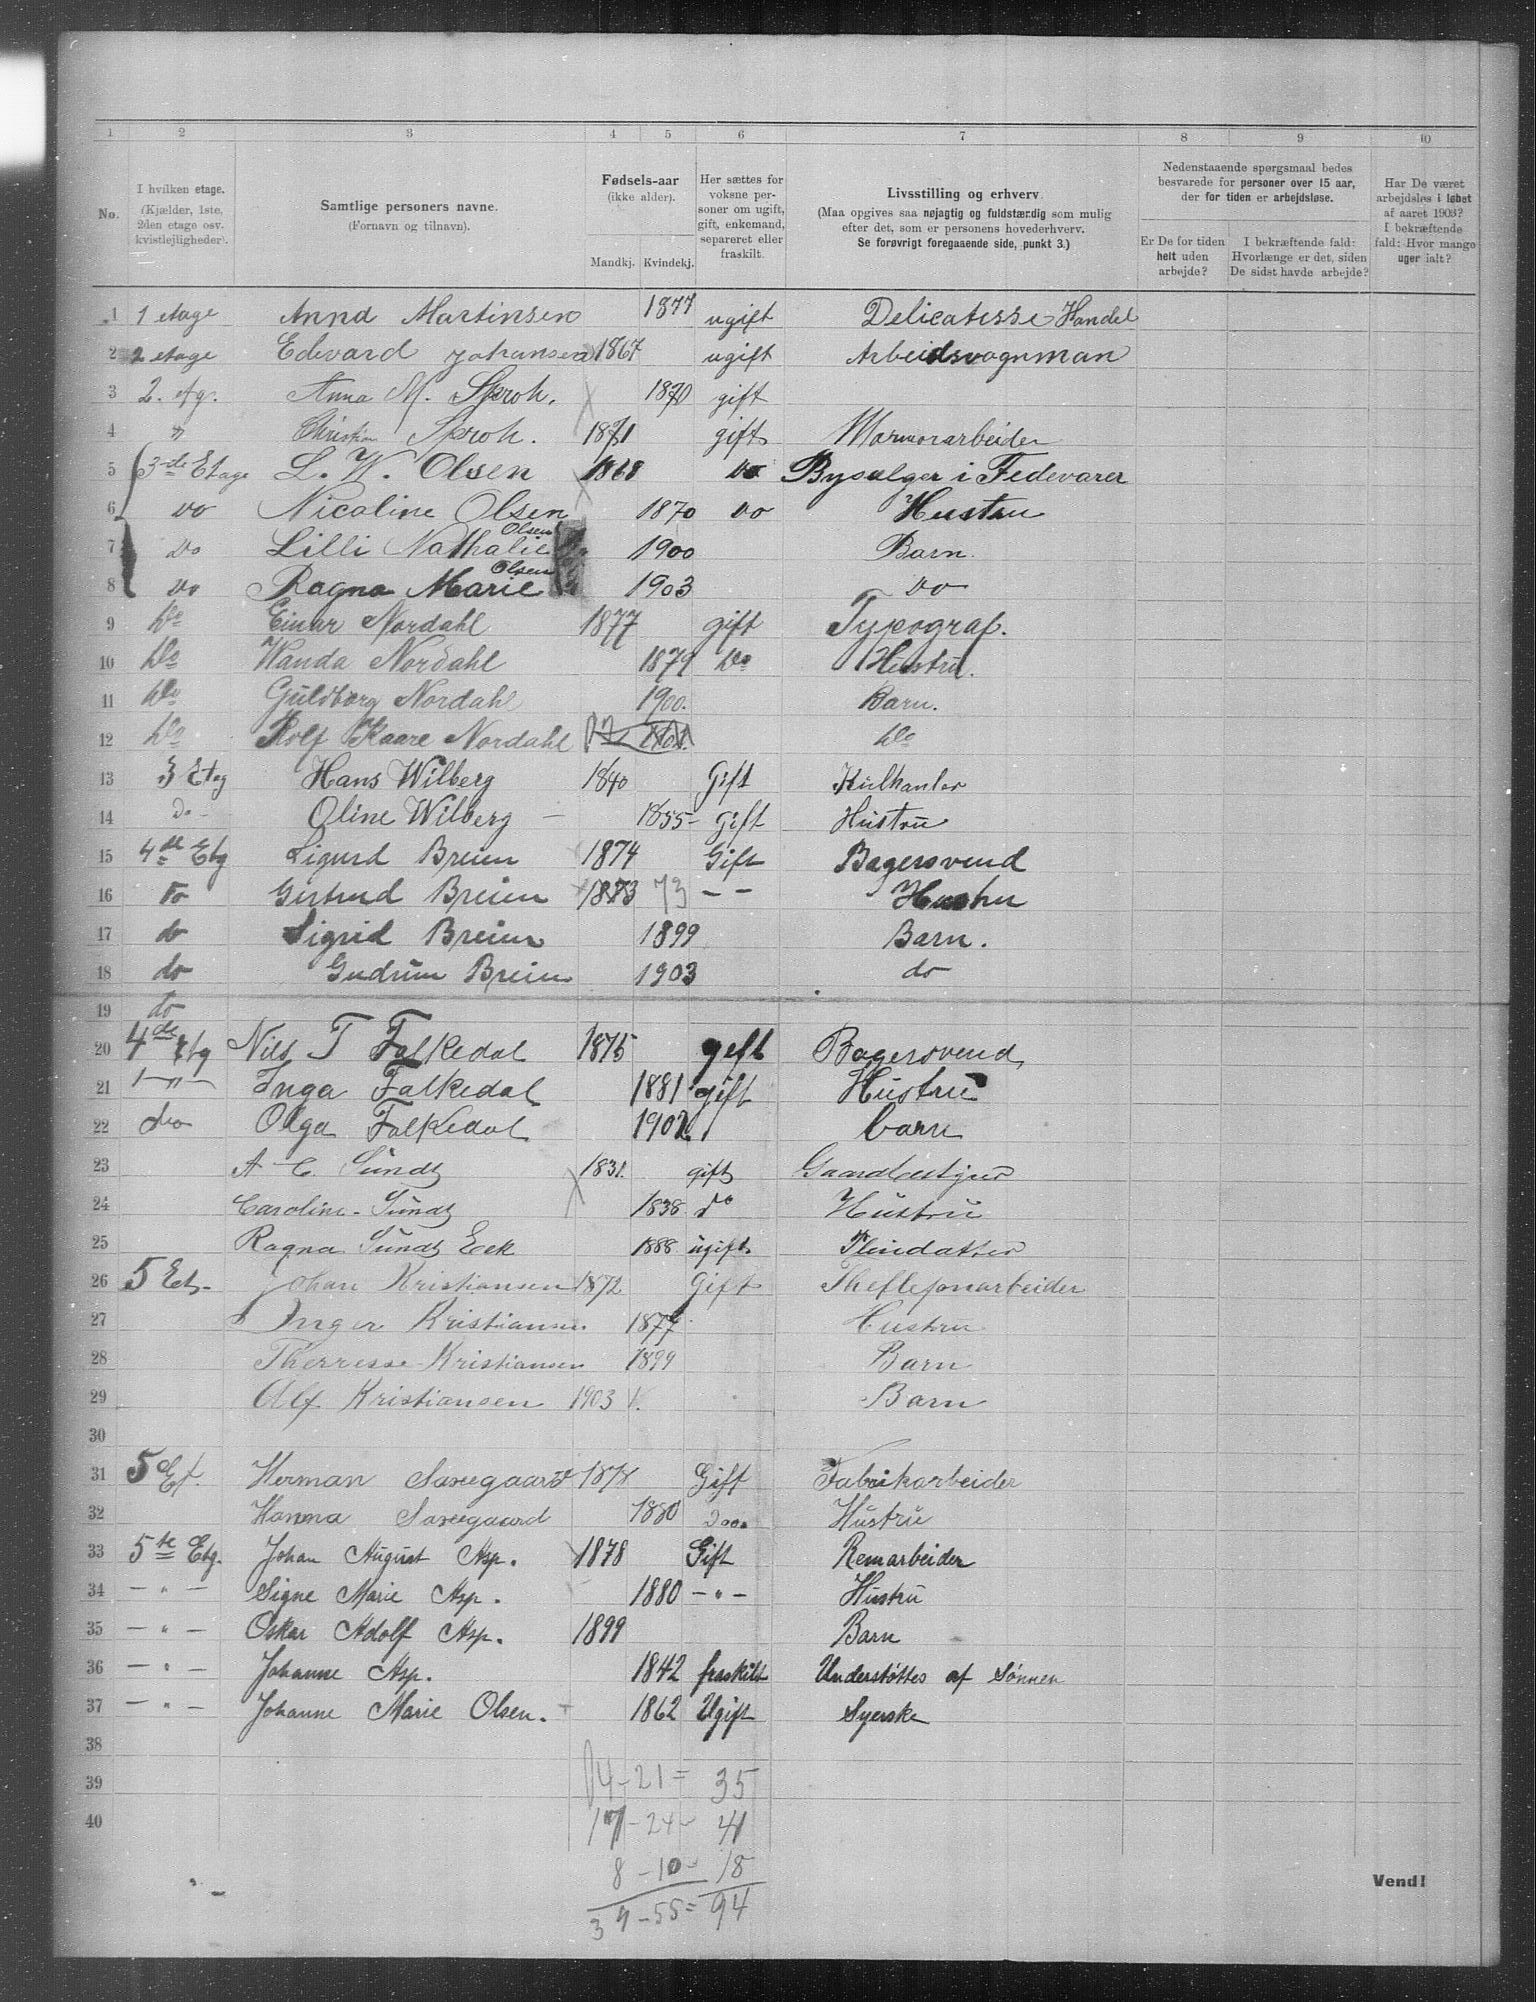 1 2 3 4 5 6 7 8 9 10
No.
I hvilken etage.
(Kjælder, 1ste, 2den etage osv. kvistlejligheder).
Samtlige personers navne.
(Fornavn og tilnavn).
Fødsels-aar
(ikke alder).
Mandkj. Kvindekj.
Her sættes for voksne personer om ugift, gift, enkemand, separeret eller fraskilt.
Livsstilling og erhverv.
(Maa opgives saa nøjagtig og fuldstændig som mulig efter det, som er personens hovederhverv.
Se forøvrigt foregaaende side, punkt 3.)
Nedenstaaende spørgsmaal bedes besvarede for personer over 15 aar, der for tiden er arbejdsløse.
Er De for tiden helt uden arbejde?
I bekræftende fald: Hvorlænge er det, siden De sidst havde arbejde?
Har De været arbejdsløs i løbet af aaret 1903? I bekræftende fald: Hvor mange uger ialt?
1 1 etage Anna Martinsen 1877 ugift Delicatesse Handel
2 2 etage Edevard Johansen 1867 ugift Arbeidsvognman
3 2. etg. Anna M. Sproh. 1870 gift
4 " Christian Sproh. 1871 gift Marmorarbeider
5 3-de Etage L. W. Olsen 1868 do Bysælger i Fedevarer
6 do Nicoline Olsen 1870 do Hustru
7 do Lilli Nathalie Olsen 1900 Barn
8 do Ragna Marie Olsen 1903 do
9 do Einar Nordahl 1877 gift Typograf.
10 do Wanda Nordahl 1879 do Hustru.
11 do Guldborg Nordahl 1900. Barn.
12 do Rolf Kaare Nordahl do
13 3 Etg Hans Wilberg 1840 Gift Kulhanler
14 do - Oline Wilberg - 1855 - gift Hustru
15 4de Etg Sigurd Breien 1874 Gift Bagersvend
16 do Gertrud Breien 1873 73 - - Hustru
17 do Sigrid Breien 1899 Barn.
18 do Gudrun Breien 1903 do
19 do
20 4de etg Nils T Falkedal 1875 gift Bagersvend,
21 -"- Inga Falkedal 1881 gift Hustru
22 do Olga Falkedal 1902 barn
23 A C Sundt 1831. gift Gaardbestyrer
24 Caroline - Sundt 1838 do Hustru
25 Ragna Sundt Eek 1888 ugift Pleiedatter
26 5 Et. Johan Kristiansen 1872 Gift Theflefonarbeider
27 Inger Kristiansen 1877 Hustru
28 Therresse Kristiansen 1899 Barn
29 Alf Kristiansen 1903 Barn
30
31 5 Et. Herman Saxegaard 1878 Gift Fabrikarbeider
32 Hanna Saxegaard 1880 Hustru
33 5te Etg. Johan August Asp. 1878 Gift Remarbeider
34 - " - Signe Marie Asp. 1880 - " - Hustru
35 - " - Oskar Adolf Asp. 1899 Barn
36 - " - Johanne Asp. 1842 fraskilt Understøttes af Sønnen
37 - " - Johanne Marie Olsen. 1862 Ugift Syerske
38
39 14 - 21 = 35
40 17 - 24 - 41
8 - 10 - 18
39 - 55 = 94
Vend!